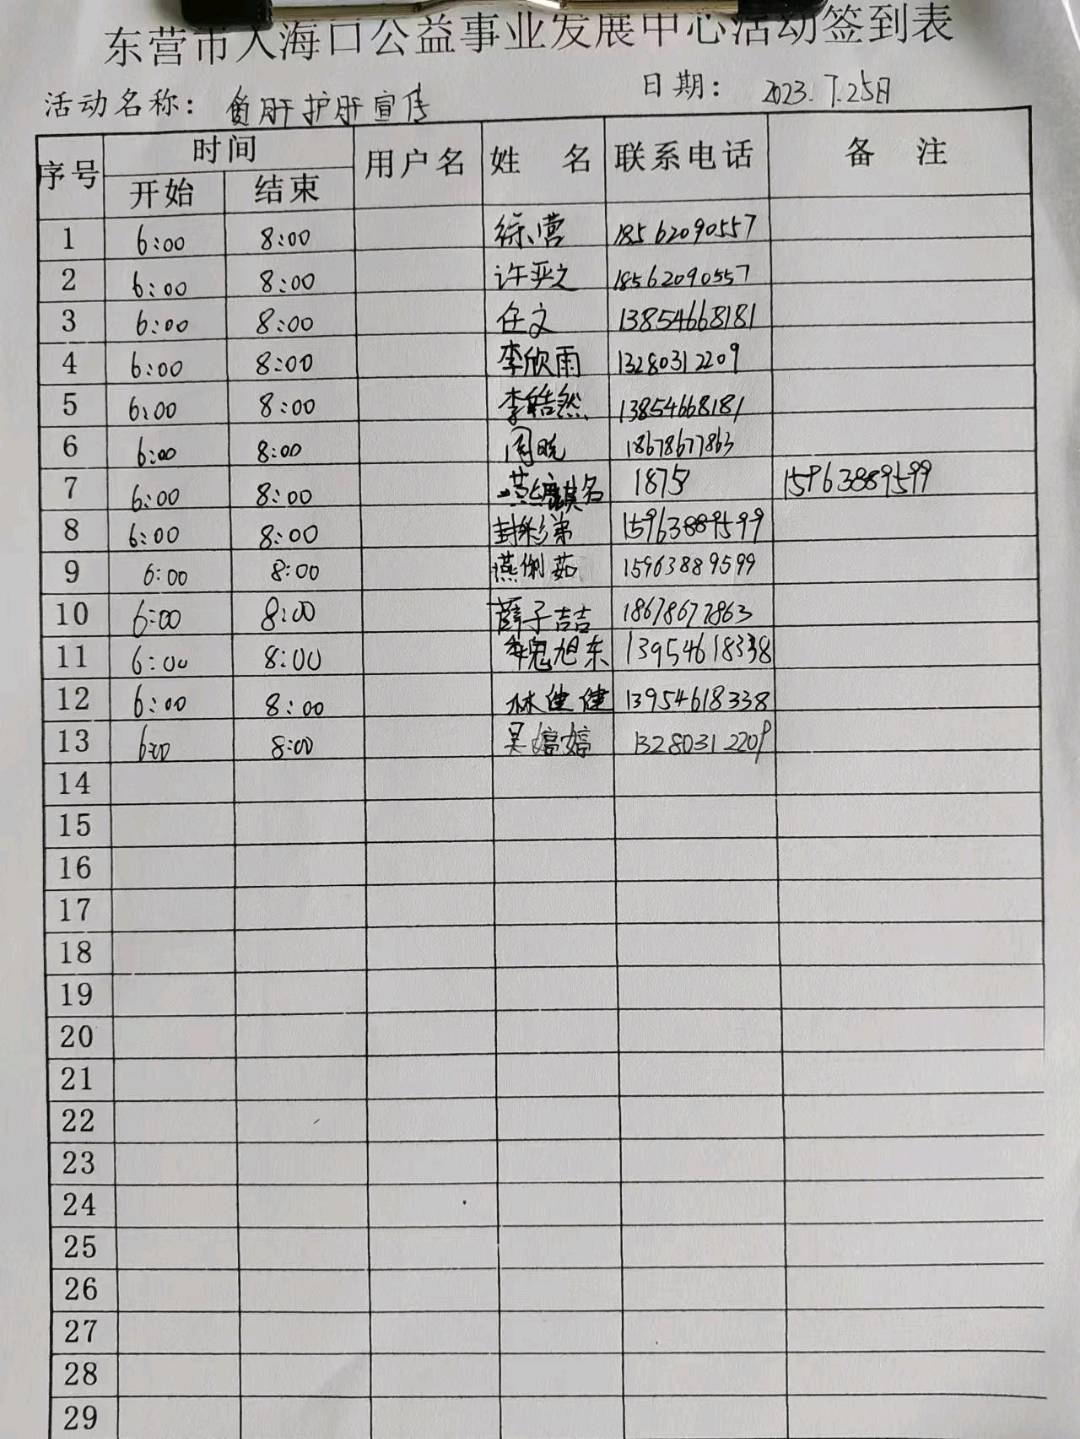 东营市入海口公益事业发展中心活动签到表
活动名称: 肝护肝宣传 日期: 2023.7.25日
序号 时间 用户名 姓 名 联系电话 备 注
开始 结束
1 6:00 8:00 徐营 18562090557
2 6:00 8:00 许亚之 18562090557
3 6:00 8:00 任文 13854668181
4 6:00 8:00 李欣雨 13280312209
5 6:00 8:00 李皓然 13854668181
6 6:00 8:00 周晓 18678677863
7 6:00 8:00 名 1875 15963889599
8 6:00 8:00 封彩弟 15963889599
9 6:00 8:00 燕俐茹 15963889599
10 6:00 8:00 薛子喆 18678677863
11 6:00 8:00 魏旭东 13954618338
12 6:00 8:00 林健健 13954618338
13 6:00 8:00 吴婷婷 13280312209
14
15
16
17
18
19
20
21
22
23
24
25
26
27
28
29